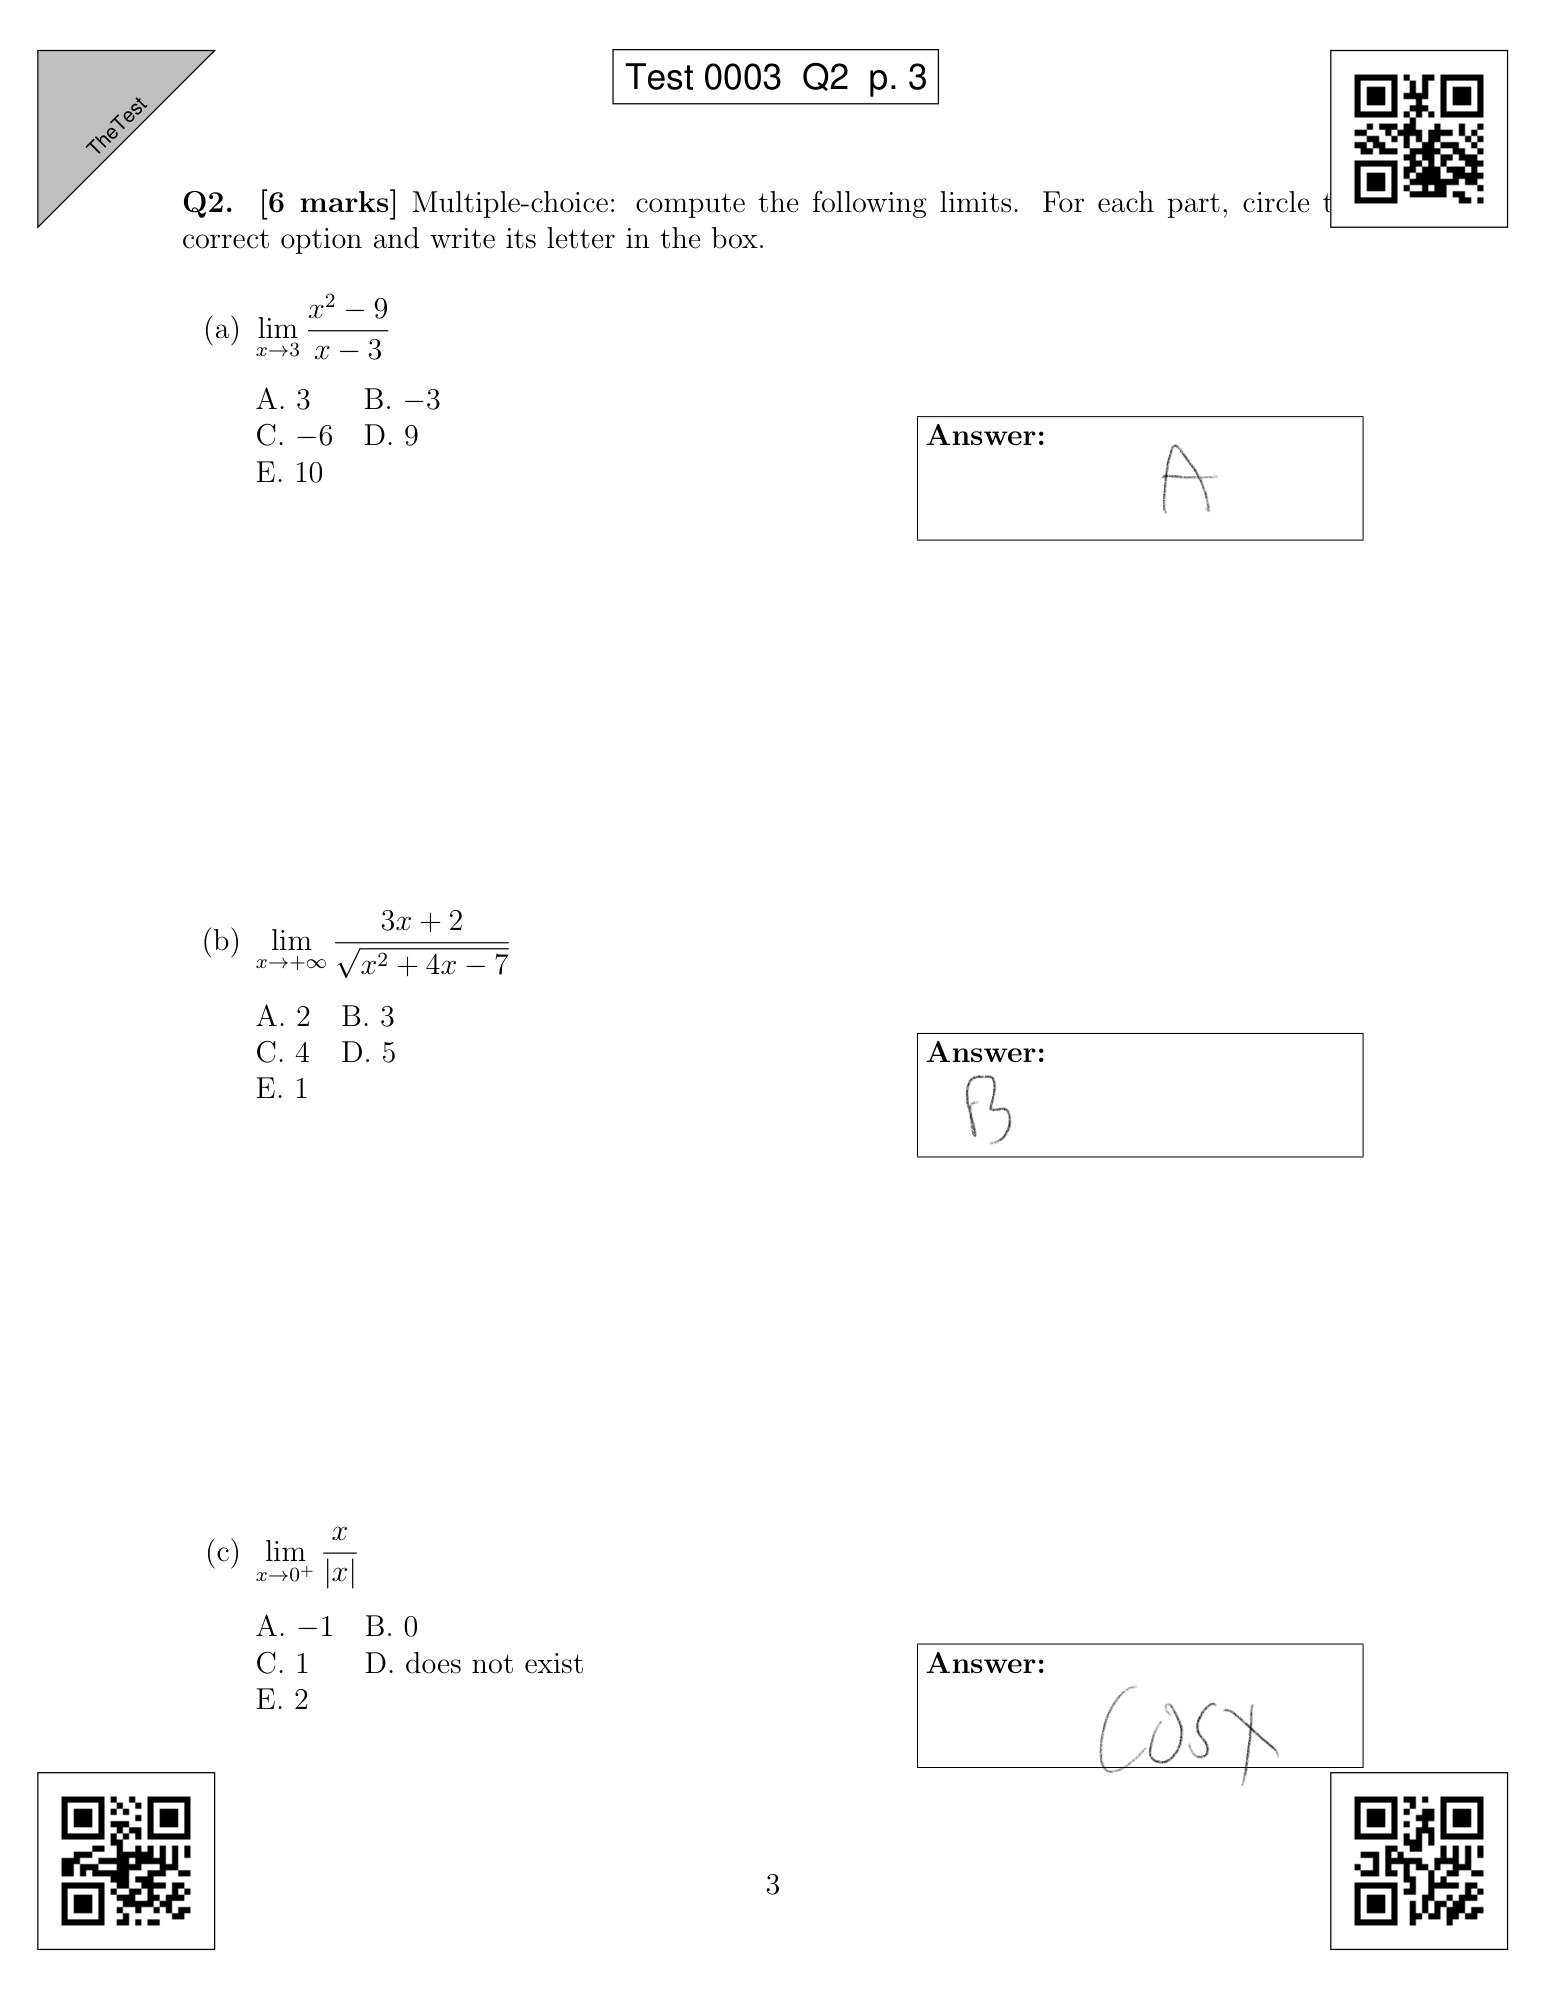 TheTest
Test 0003 Q2 p. 3
Q2. [6 marks] Multiple-choice: compute the following limits. For each part, circle t
correct option and write its letter in the box.
(a) lim_{x→3} \frac{x^2 − 9}{x − 3}
A. 3 B. −3
C. −6 D. 9
E. 10
Answer:
A
(b) lim_{x→+∞} \frac{3x + 2}{\sqrt{x^2 + 4x − 7}}
A. 2 B. 3
C. 4 D. 5
E. 1
Answer:
B
(c) lim_{x→0^+} \frac{x}{|x|}
A. −1 B. 0
C. 1 D. does not exist
E. 2
Answer:
cosx
3